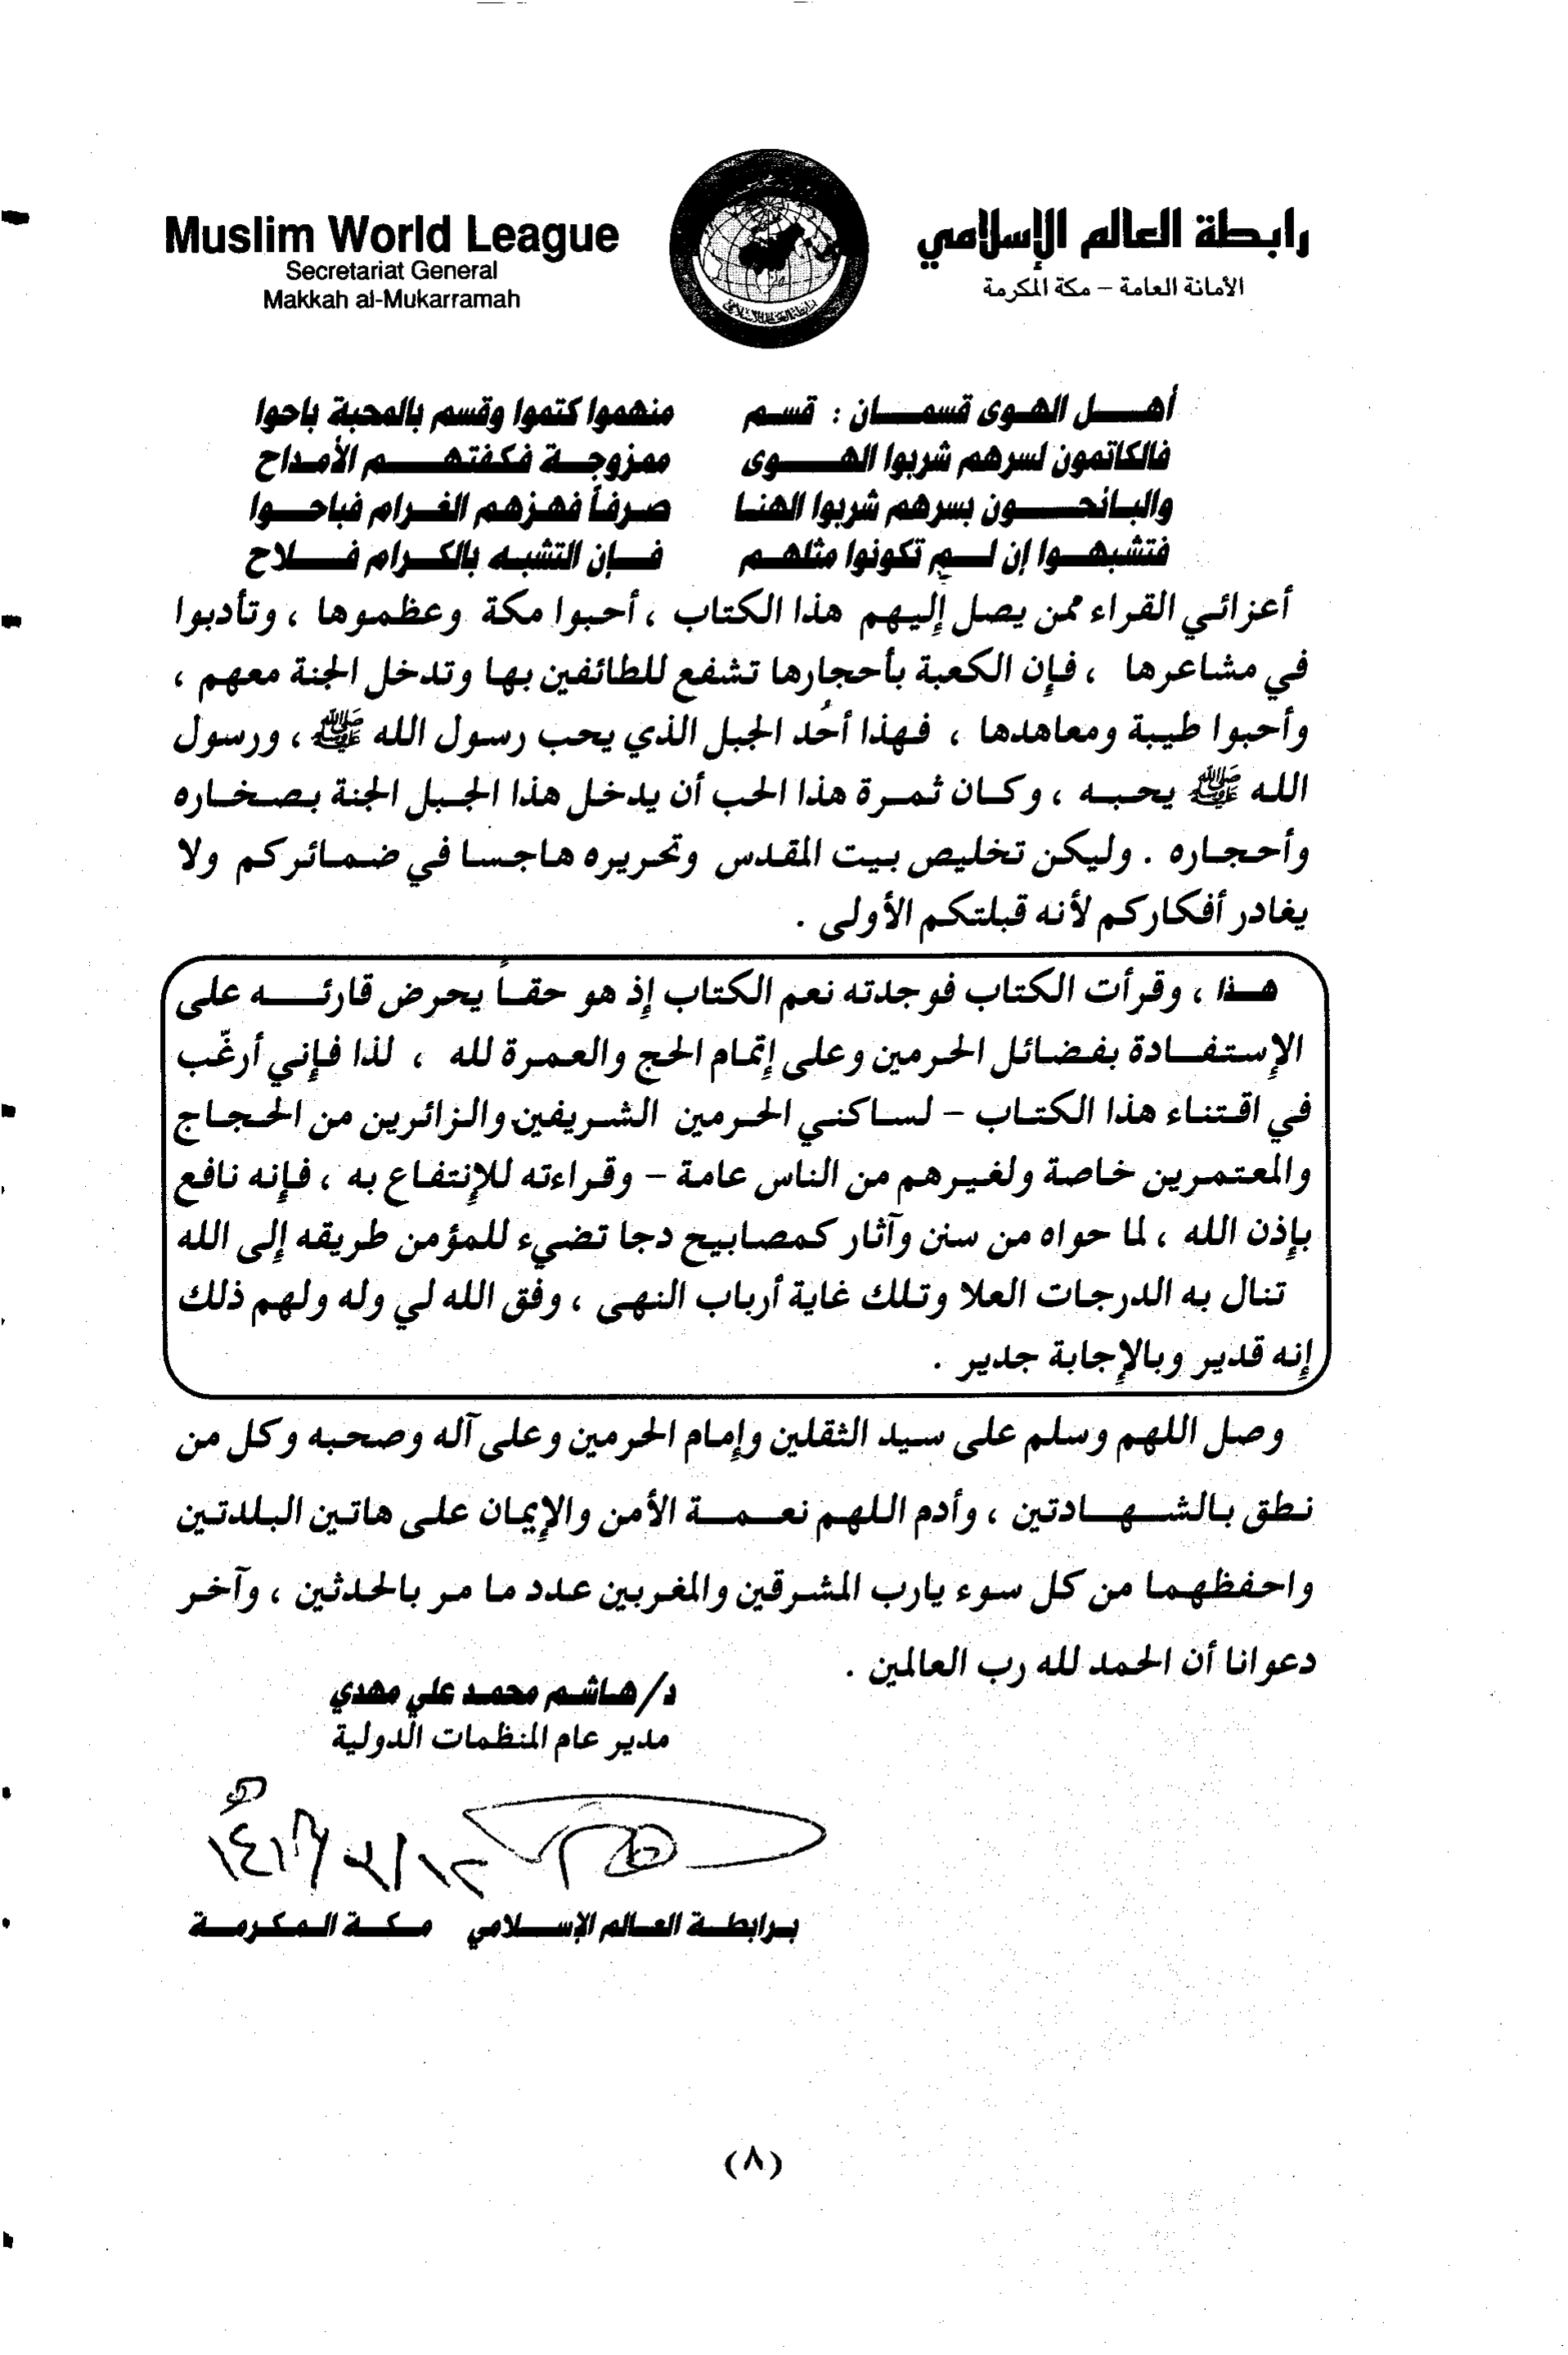 Muslim World League
Secretariat General
Makkah al-Mukarramah
رابطة العالم الإسلامي
الأمانة العامة – مكة المكرمة
أهل الهوى قسمان : قسم منهموا كتموا وقسم بالمحبة باحوا
فالكاتمون لسرهم شربوا الهوى ممزوجة فكفتهم الأمداح
والبائحون بسرهم شربوا الهنا صرفاً فهزهم الغرام فباحوا
فتشبهوا إن لم تكونوا مثلهم فإن التشبه بالكرام فلاح
أعزائي القراء ممن يصل إليهم هذا الكتاب ، أحبوا مكة وعظموها ، وتأدبوا
في مشاعرها ، فإن الكعبة بأحجارها تشفع للطائفين بها وتدخل الجنة معهم ،
وأحبوا طيبة ومعاهدها ، فهذا أُحد الجبل الذي يحب رسول الله ﷺ ، ورسول
الله ﷺ يحبه ، وكان ثمرة هذا الحب أن يدخل هذا الجبل الجنة بصخاره
وأحجاره . وليكن تخليص بيت المقدس وتحريره هاجسا في ضمائركم ولا
يغادر أفكاركم لأنه قبلتكم الأولى .
هذا ، وقرأت الكتاب فوجدته نعم الكتاب إذ هو حقاً يحرض قارئه على
الإستفادة بفضائل الحرمين وعلى إتمام الحج والعمرة لله ، لذا فإني أرغّب
في اقتناء هذا الكتاب – لساكني الحرمين الشريفين والزائرين من الحجاج
والمعتمرين خاصة ولغيرهم من الناس عامة – وقراءته للإنتفاع به ، فإنه نافع
بإذن الله ، لما حواه من سنن وآثار كمصابيح دجا تضيء للمؤمن طريقه إلى الله
تنال به الدرجات العلا وتلك غاية أرباب النهى ، وفق الله لي وله ولهم ذلك
إنه قدير وبالإجابة جدير .
وصل اللهم وسلم على سيد الثقلين وإمام الحرمين وعلى آله وصحبه وكل من
نطق بالشهادتين ، وأدم اللهم نعمة الأمن والإيمان على هاتين البلدتين
واحفظهما من كل سوء يارب المشرقين والمغربين عدد ما مر بالحدثين ، وآخر
دعوانا أن الحمد لله رب العالمين .
د/هاشم محمد علي مهدي
مدير عام المنظمات الدولية
برابطة العالم الإسلامي مكة المكرمة
(٨)